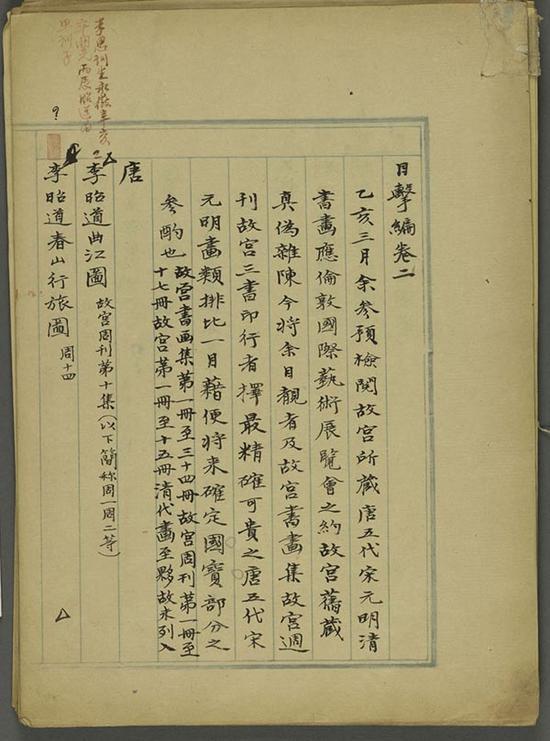 目擊編卷二
乙亥三月余參預檢閱故宮所藏唐五代宋元明清
書畫應倫敦國際藝術展覽會之約故宮舊藏
真偽雜陳今將余目觀者及故宮書畫集故宮週
刊故宮三書印行者擇最精確可貴之唐五代宋
元明畫類排比一目藉便將來確定國寶部分之
參酌也
故宮書画集第一冊至三十四冊故宮周刊第一冊至
十七冊故宮第一冊至十五冊清代畫至夥故未列入
唐
李昭道曲江圖 故宮周刊第十集(以下簡称周一周二等)
李昭道春山行旅圖 周十四
李思訓生永徽辛亥
卒開元丙辰昭道為
中列子
?
?